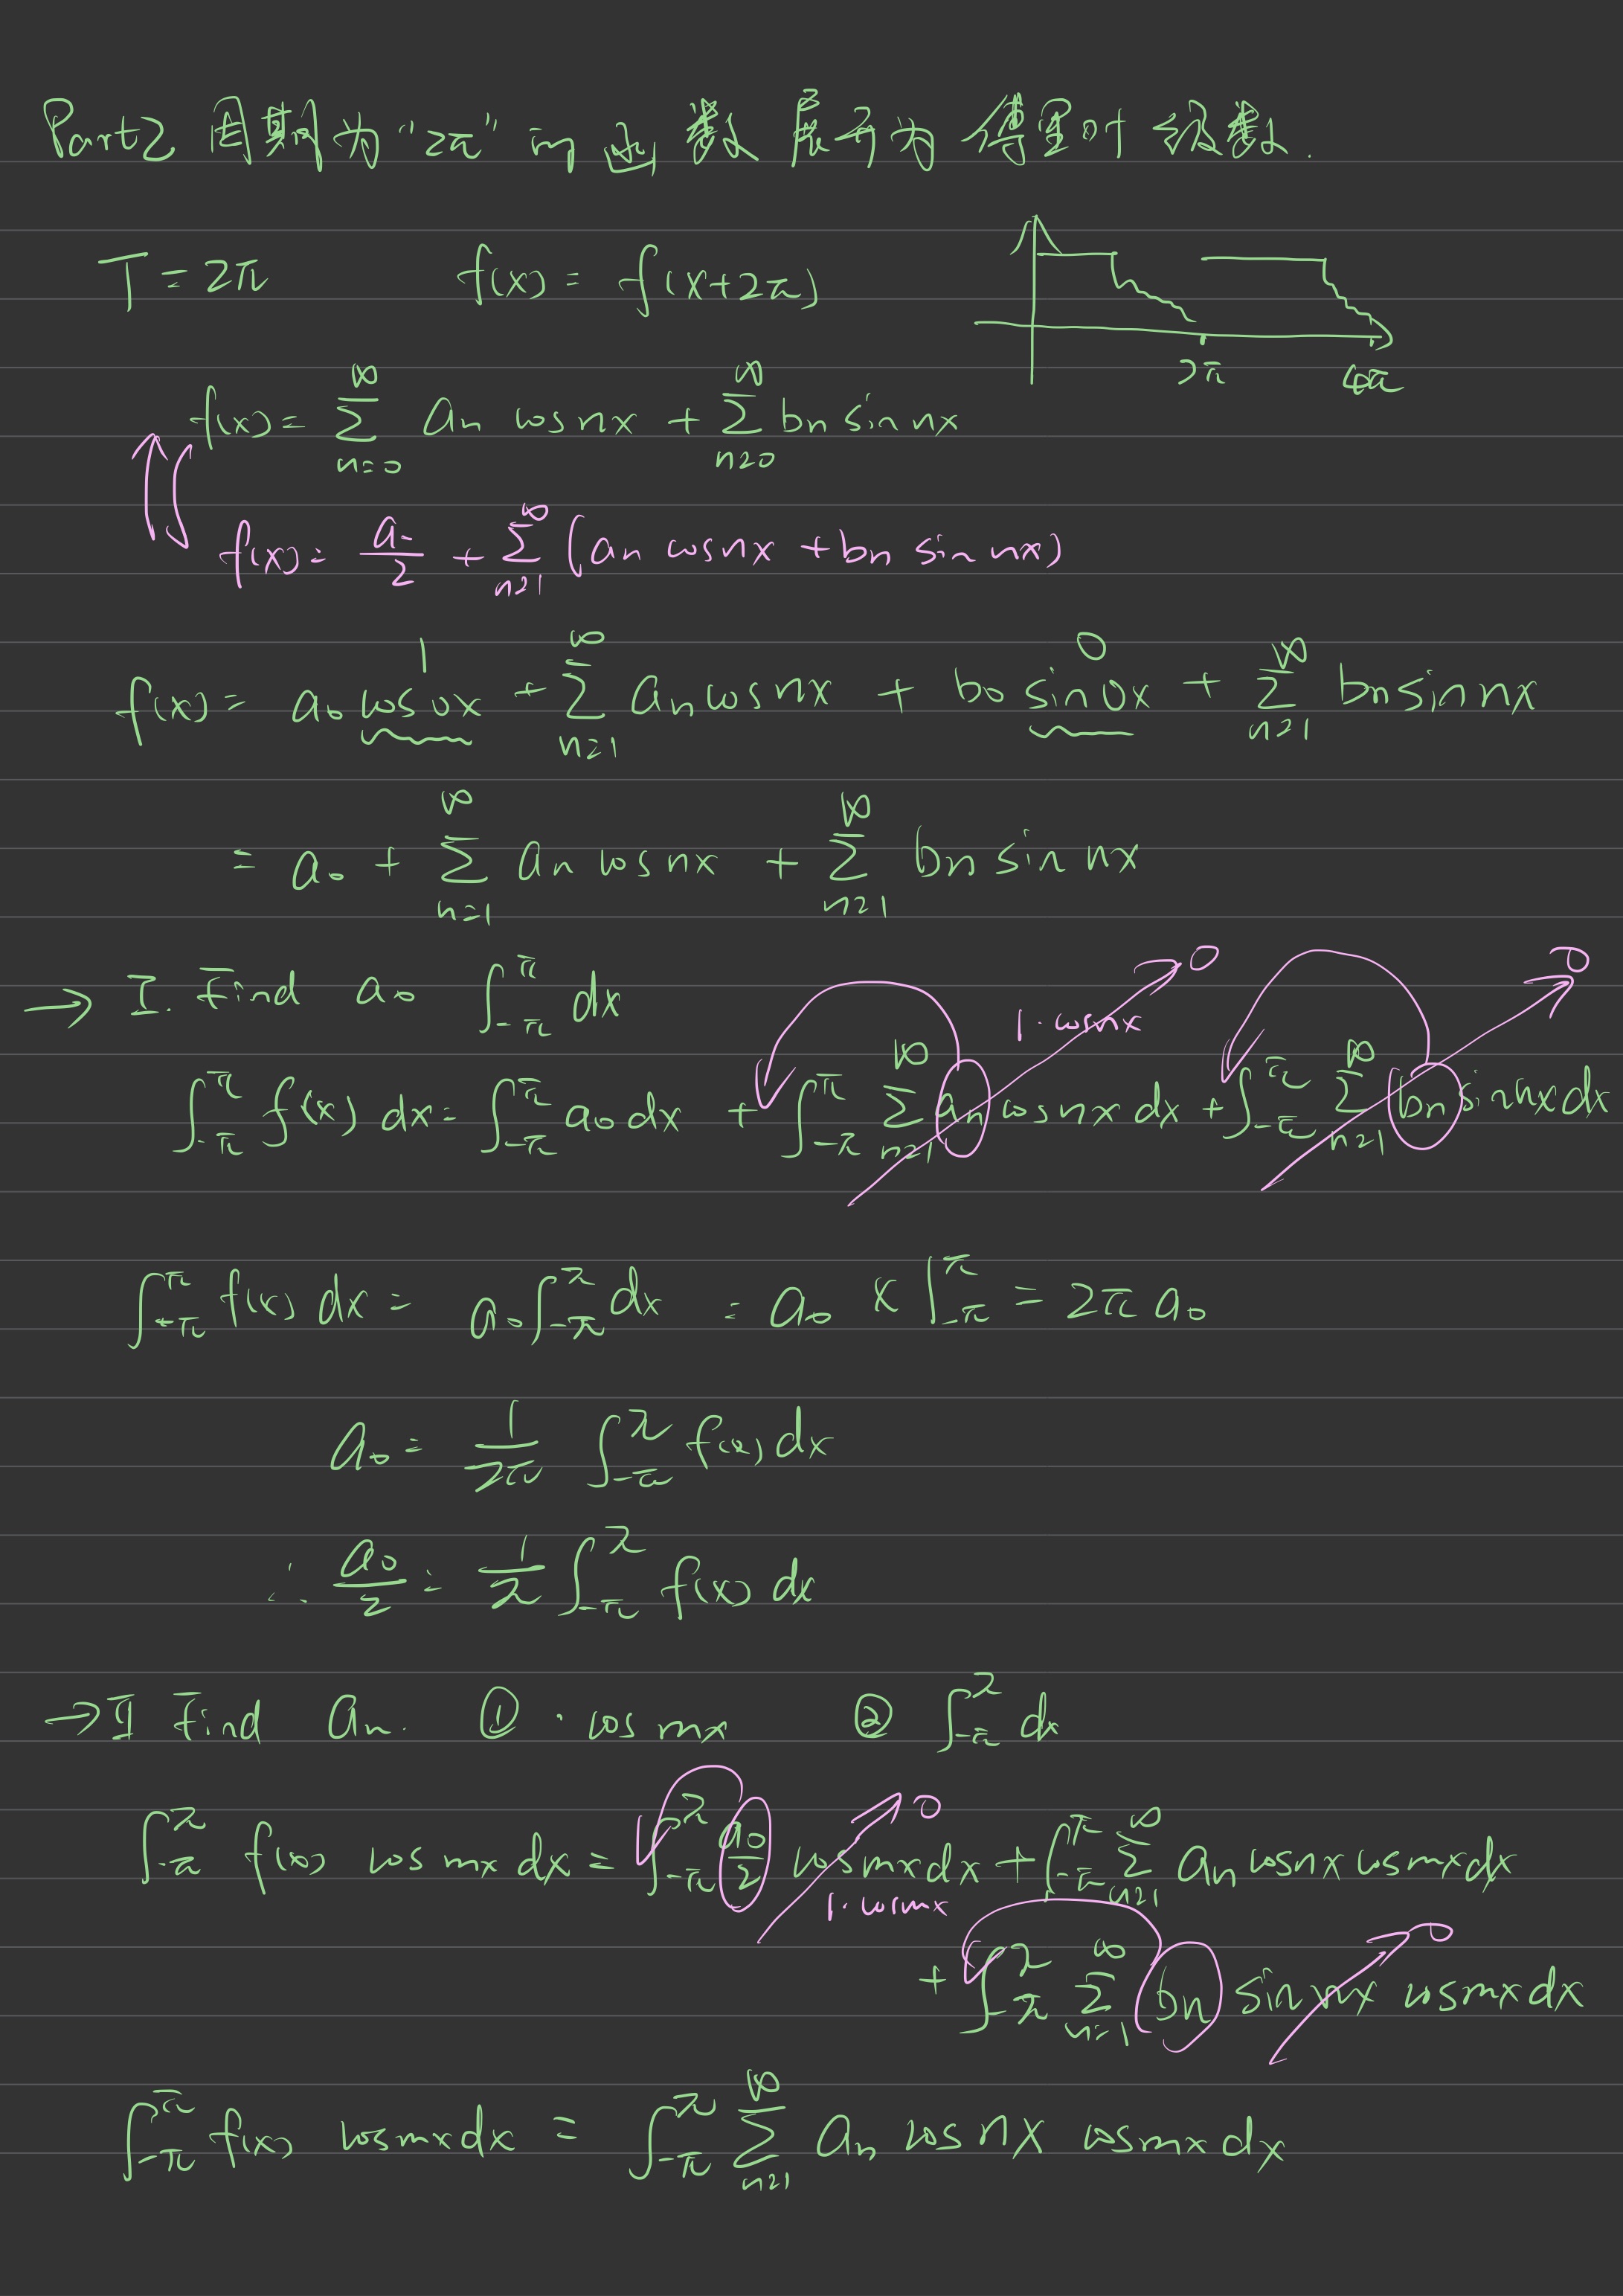 Part2 周期为"2π"的函数展开为傅里叶级数.
T=2π f(x)= f(x+2π)
2π 4π
f(x)= ∑_{n=0}^{∞} a_n cos nx + ∑_{n=0}^{∞} b_n sin nx
f(x)= a_0/2 + ∑_{n=1}^{∞} (a_n cos nx + b_n sin nx)
1 0
f(x)= a_0 cos 0x + ∑_{n=1}^{∞} a_n cos nx + b_0 sin 0x + ∑_{n=1}^{∞} b_n sin nx
= a_0 + ∑_{n=1}^{∞} a_n cos nx + ∑_{n=1}^{∞} b_n sin nx
→ I. Find a_0 ∫_{-π}^{π} dx
0 0
1·cos nx
∫_{-π}^{π} f(x) dx = ∫_{-π}^{π} a_0 dx + ∫_{-π}^{π} ∑_{n=1}^{∞} a_n cos nx dx + ∫_{-π}^{π} ∑_{n=1}^{∞} b_n sin nx dx
∫_{-π}^{π} f(x) dx = a_0 ∫_{-π}^{π} dx = a_0 x |_{-π}^{π} = 2π a_0
a_0 = 1/2π ∫_{-π}^{π} f(x) dx
∴ a_0/2 = 1/π ∫_{-π}^{π} f(x) dx
→ II Find a_n. ① · cos mx ② ∫_{-π}^{π} dx
0
∫_{-π}^{π} f(x) cos mx dx = ∫_{-π}^{π} a_0/2 cos mx dx + ∫_{-π}^{π} ∑_{n=1}^{∞} a_n cos nx cos mx dx
1·cos mx
0
+ ∫_{-π}^{π} ∑_{n=1}^{∞} b_n sin nx cos mx dx
∫_{-π}^{π} f(x) cos mx dx = ∫_{-π}^{π} ∑_{n=1}^{∞} a_n cos nx cos mx dx